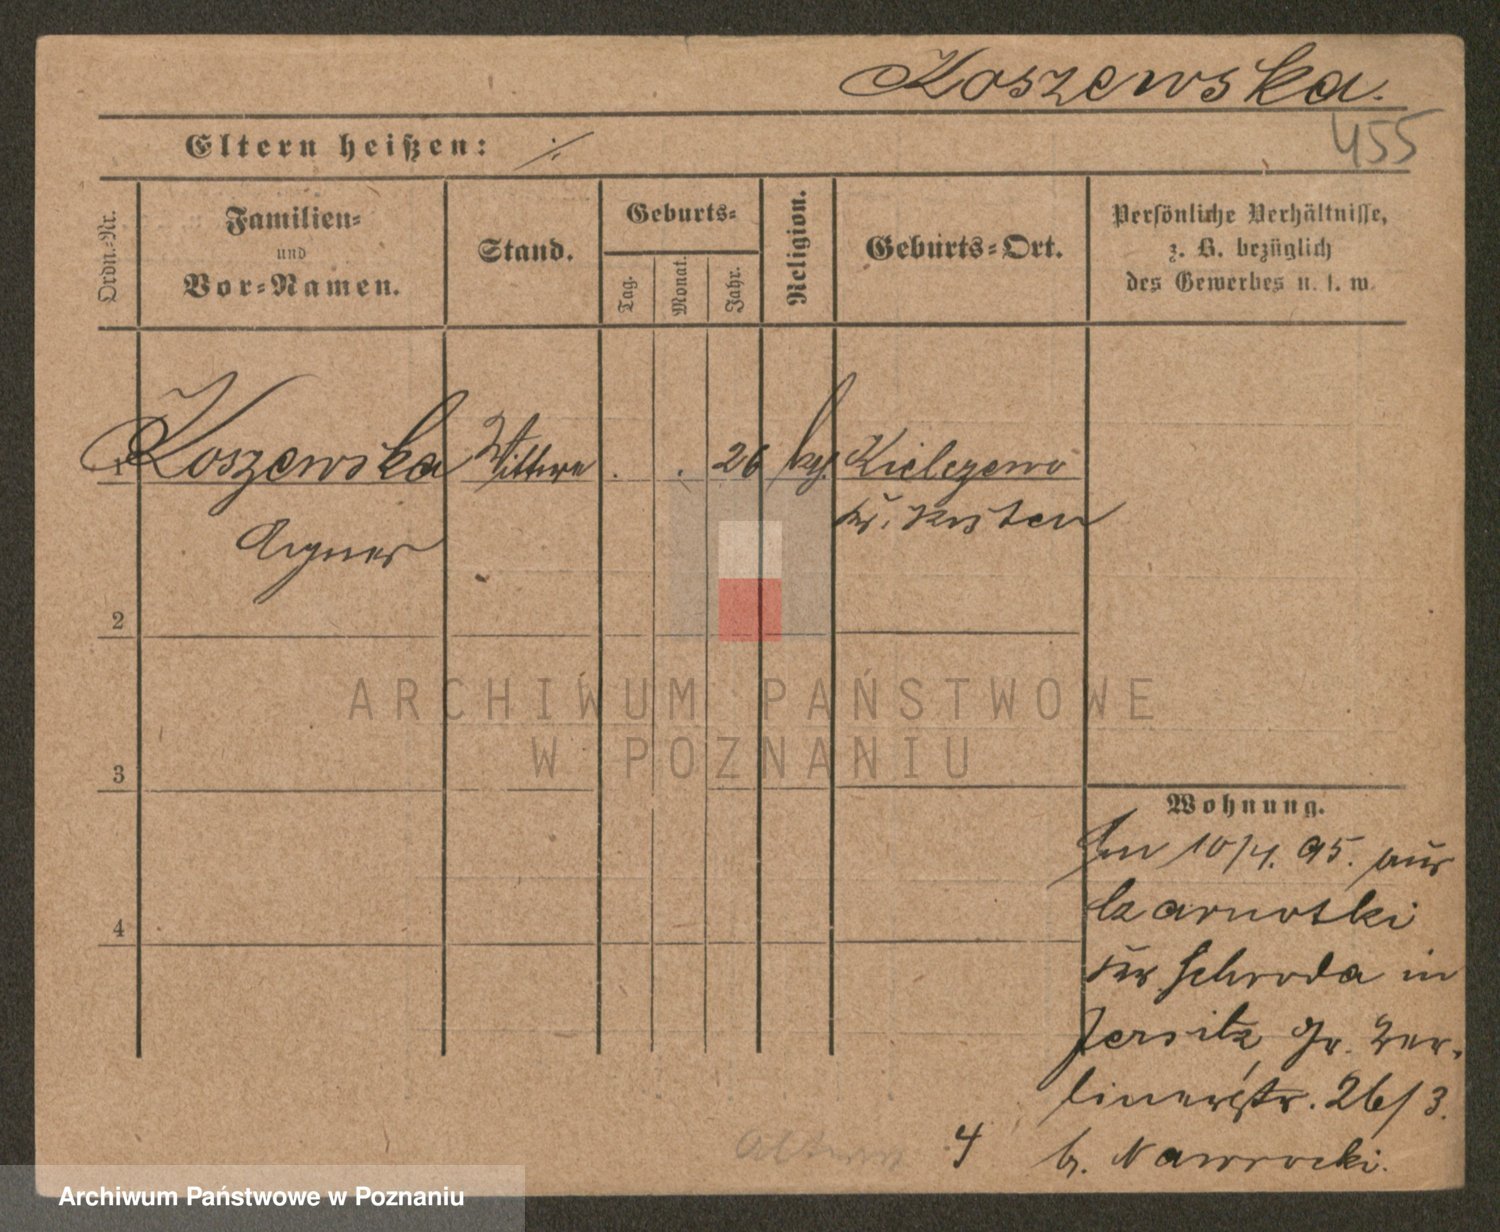 Koszewska.
455
Eltern heißen: ·/·
Ordn.-Nr.
Familien-
und
Vor-Namen.
Stand.
Geburts-
Tag.
Monat.
Jahr.
Religion.
Geburts-Ort.
Persönliche Verhältnisse,
z. B. bezüglich
des Gewerbes u. s. w.
1 Koszewska Wittwe . . 26 kth. Kielczewo
Agnes Kr. Kosten
2
3
4
ARCHIWUM PAŃSTWOWE
W POZNANIU
Wohnung.
Am 10/4. 95. aus
Czarnotki
Kr Schroda in
Jersitz, Gr. Ber-
linerstr. 26/3.
b. Nawrocki.
4
Archiwum Państwowe w Poznaniu